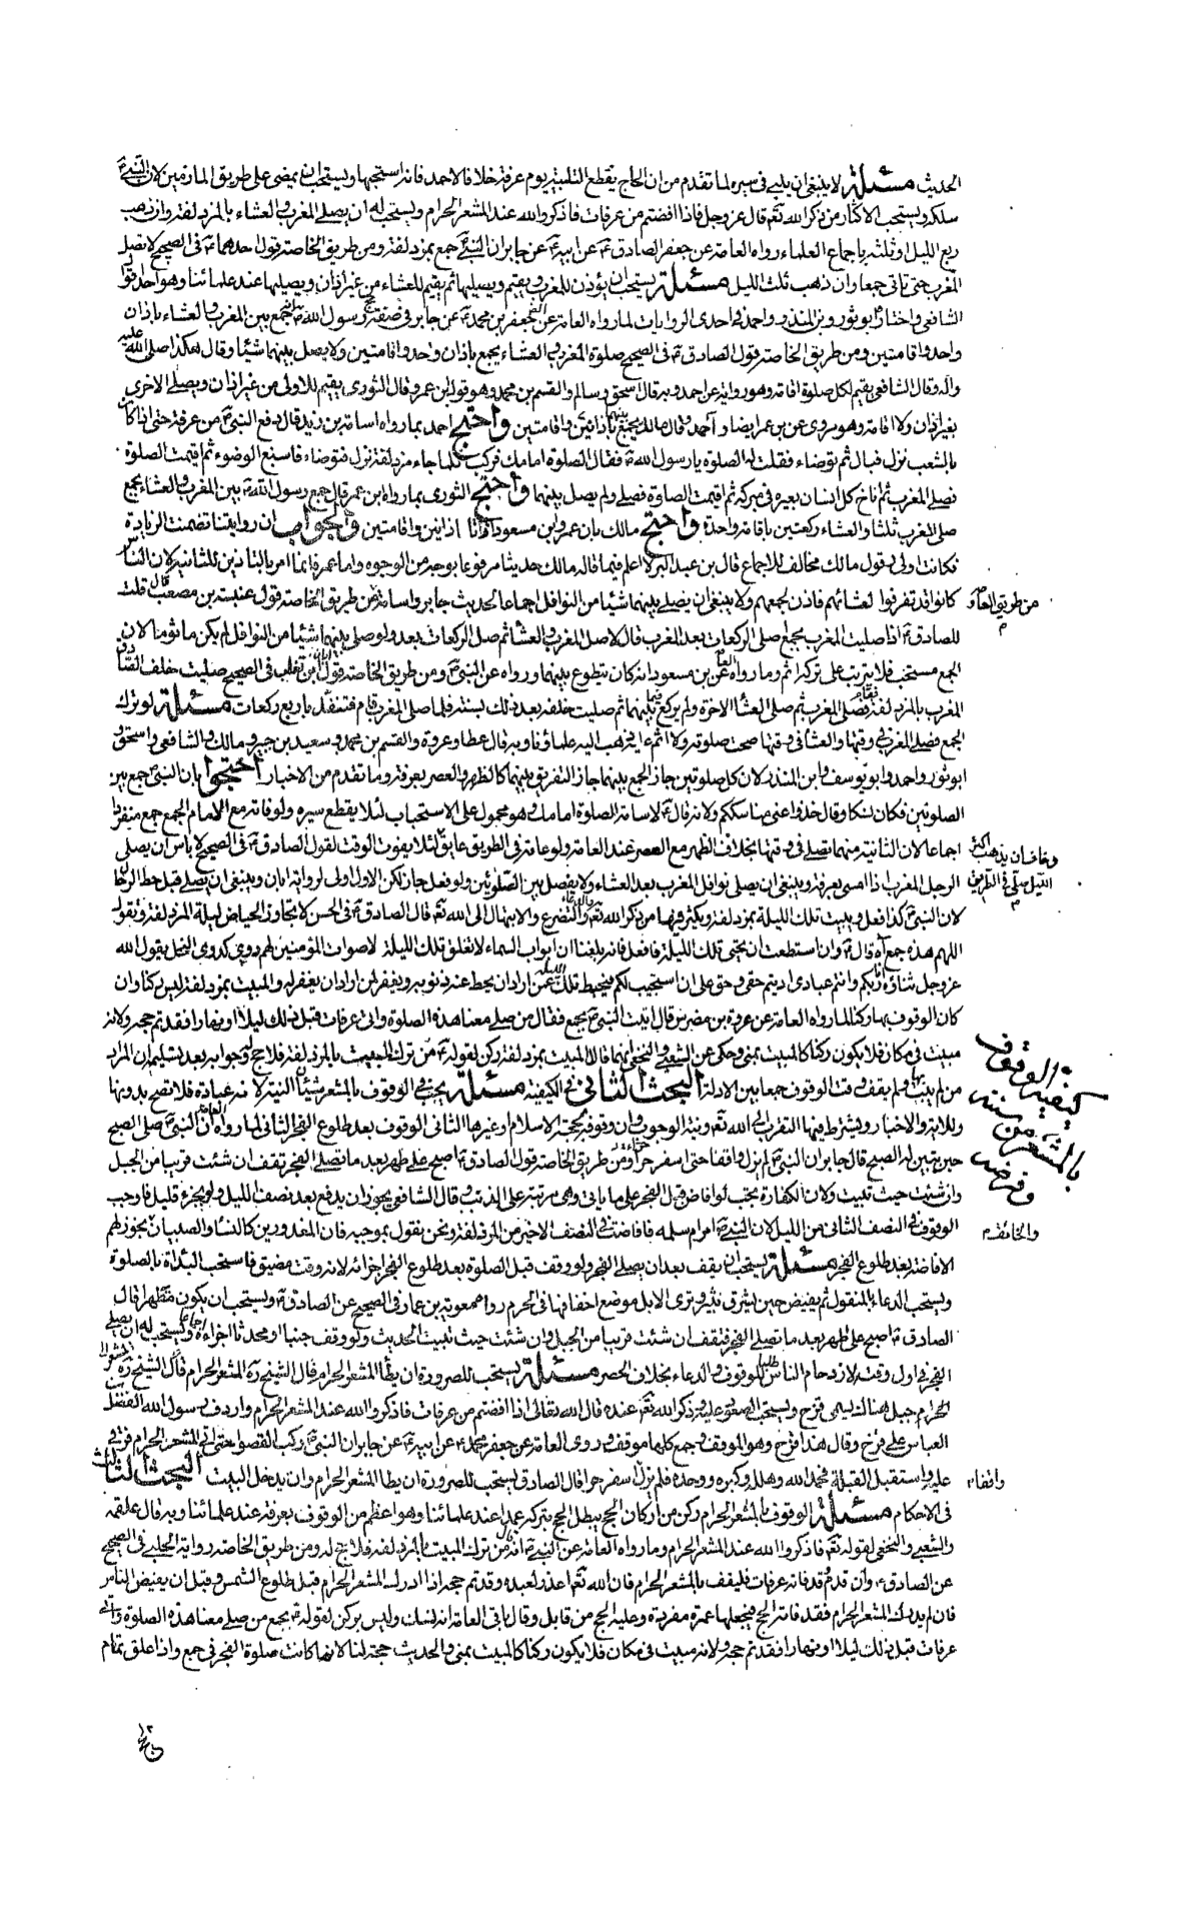 الحديث مسئلة لا ينبغي ان يلبي في سيره لما تقدم من ان الحاج يقطع التلبية يوم عرفة خلافا لاحمد فانه استحبها ويستحب ان يمضي على طريق المازمين لان النبي ص
سلكه ويستحب الاكثار من ذكر الله تع قال عز وجل فاذا افضتم من عرفات فاذكروا الله عند المشعر الحرام ويستحب له ان يصلي المغرب والعشاء بالمزدلفة وان ذهب
ربع الليل او ثلثه باجماع العلماء رواه العامة عن جعفر الصادق ع عن ابيه ع عن جابر ان النبي ص جمع بمزدلفة ومن طريق الخاصة قول احدهما ع في الصحيح لا تصل
المغرب حتى تاتي جمعا وان ذهب ثلث الليل مسئلة يستحب ان يؤذن للمغرب ويقيم ويصليها ثم يقيم للعشاء من غير اذان ويصليها عند علمائنا وهو احد قولي
الشافعي واختاره ابو ثور وبن المنذر واحمد في احدى الروايات لما رواه العامة عن الصادق جعفر بن محمد ع عن جابر في صفة حج رسول الله ص انه جمع بين المغرب والعشاء باذان
واحد واقامتين ومن طريق الخاصة قول الصادق ع في الصحيح صلوة المغرب والعشاء يجمع باذان واحد واقامتين ولا يصل بينهما شيئا وقال هكذا صلى الله عليه
واله وقال الشافعي يقيم لكل صلوة اقامة وهو رواية عن احمد وبه قال اسحق وسالم والقسم بن محمد وهو قول ابن عمر وقال الثوري يقيم للاولى من غير اذان ويصلي الاخرى
بغير اذان ولا اقامة وهو مروي عن بن عمر ايضا واحمد وقال مالك يجمع بينهما باذانين واقامتين واحتج احمد بما رواه اسامة بن زيد قال دفع النبي ص من عرفة حتى اذا كان
بالشعب نزل فبال ثم توضاء فقلت له الصلوة يا رسول الله ص فقال الصلوة امامك فركب فلما جاء مزدلفة نزل فتوضاء فاسبغ الوضوء ثم اقيمت الصلوة
فصلى المغرب ثم اناخ كل انسان بعيره في مبركه ثم اقيمت الصلوة فصلى ولم يصل بينهما واحتج الثوري بما رواه ابن عمر قال جمع رسول الله ص بين المغرب والعشاء بجمع
صلى المغرب ثلثا والعشاء ركعتين باقامة واحدة واحتج مالك بان عمر وابن مسعود اذنا اذانين واقامتين والجواب ان روايتنا تضمنت الزيادة
فكانت اولى وقول مالك مخالف للاجماع قال بن عبد البر لا اعلم فيما قاله مالك حديثا مرفوعا بوجه من الوجوه واما عمر فانما امر بالتاذين للثانية لان الناس
كانوا قد تفرقوا لعشائهم فاذن لجمعهم ولا ينبغي ان يصلي بينهما شيئا من النوافل اجماعا لحديث جابر واسامة ومن طريق الخاصة قول عنبسة بن مصعب قال قلت
من طريق العامة
للصادق ع اذا صليت المغرب بجمع اصلي الركعات بعد المغرب قال لا صل المغرب والعشاء ثم صل الركعات بعد ولو صلى بينهما شيئا من النوافل لم يكن ماثوما لان
الجمع مستحب فلا يترتب على تركه اثم وما رواه العامة عن بن مسعود انه كان يتطوع بينهما ورواه عن النبي ص ومن طريق الخاصة قول ابان بن تغلب في الصحيح صليت خلف الصادق
المغرب بالمزدلفة فقام فصلى المغرب ثم صلى العشاء الاخرة ولم يركع فيما بينهما ثم صليت خلفه بعد ذلك بسنة فلما صلى المغرب قام فتنفل باربع ركعات مسئلة لو ترك
الجمع فصلى المغرب في وقتها والعشاء في وقتها صحت صلوته ولا اثم ذهب اليه علماؤنا وبه قال عطا وعروة والقسم بن محمد وسعيد بن جبير ومالك والشافعي واسحق و
ابو ثور واحمد وابو يوسف وابن المنذر لان كل صلوتين جاز الجمع بينهما جاز التفريق بينهما كالظهر والعصر بعرفة وما تقدم من الاخبار احتجوا بان النبي ص جمع بين
الصلوتين فكان نسكا وقال خذوا عني مناسككم ولانه قال ع لاسامة الصلوة امامك وهو محمول على الاستحباب لئلا يقطع سيره ولو فاته مع الامام الجمع جمع منفردا
اجماعا لان الثانية منهما يصلي في وقتها بخلاف الظهر مع العصر عند العامة ولو عاقه في الطريق عايق
وخاف ان يذهب اكثر
الليل صلى في الطريق
لئلا يفوت الوقت لقول الصادق ع في الصحيح لا باس ان يصلي
الرجل المغرب اذا امسى بعرفة وينبغي ان يصلي نوافل المغرب بعد العشاء ولا يفصل بين الصلوتين ولو فعل جاز لكن الاول اولى لرواية ابان وينبغي ان يصلي قبل حط الرحال
لان النبي ص كذا فعل ويبيت تلك الليلة بمزدلفة ويكثر فيها من ذكر الله تع والدعاء والتضرع والابتهال الى الله تع قال الصادق ع في الحسن لا تتجاوز الحياض ليلة المزدلفة وتقول
اللهم هذه جمع آه قال ع وان استطعت ان تحيي تلك الليلة فافعل فانه بلغنا ان ابواب السماء لا تغلق تلك الليلة لاصوات المؤمنين لهم دوي كدوي النحل يقول الله
عز وجل ثناؤه انا ربكم وانتم عبادي اديتم حقي وحق علي ان استجيب لكم فيحط تلك الليلة عمن اراد ان يحط عنه ذنوبه ويغفر لمن اراد ان يغفر له والمبيت بمزدلفة ليس ركنا وان
كان الوقوف بها ركنا لما رواه العامة عن عروة بن مضرس قال اتيت النبي ص بجمع فقال من صلى معنا هذه الصلوة واتى عرفات قبل ذلك ليلا او نهارا فقد تم حجه ولانه
مبيت في مكان فلا يكون ركنا كالمبيت بمنى وحكي عن الشعبي والنخعي انهما قالا المبيت بمزدلفة ركن لقوله ص من ترك المبيت بالمزدلفة فلا حج له وجوابه بعد تسليمه ان المراد
من لم يبت بها ولم يقف وقت الوقوف جمعا بين الادلة البحث الثاني في الكيفية مسئلة يجب في الوقوف بالمشعر شيئان النية لانه عبادة فلا تصح بدونها
كيفية الوقوف
بالمشعر من سننه
وفرضه
وللاية والاخبار ويشترط فيها التقرب الى الله تع ونية الوجوب وان وقوفه لحجة الاسلام او غيرها الثاني الوقوف بعد طلوع الفجر الثاني لما رواه العامة ان النبي ص صلى الصبح
حين تبين له الصبح قال جابر ان النبي ص لم يزل واقفا حتى اسفر جدا ومن طريق الخاصة قول الصادق ع اصبح على طهر بعد ما تصلي الفجر فقف ان شئت قريبا من الجبل
وان شئت حيث تبيت ولان الكفارة يجب لو افاض قبل الفجر على ما ياتي وهي مرتبة على الذنب وقال الشافعي يجوز ان يدفع بعد نصف الليل ولو بجزء قليل فاوجب
الوقوف في النصف الثاني من الليل لان النبي ص امر ام سلمة فافاضت في النصف الاخير من المزدلفة ونحن نقول بموجبه فان المعذورين كالنساء والصبيان
والخائف
يجوز لهم
الافاضة بعد طلوع الفجر مسئلة يستحب ان يقف بعد ان يصلي الفجر ولو وقف قبل الصلوة بعد طلوع الفجر اجزاه لانه وقت مضيق فاستحب البداة بالصلوة
ويستحب الدعاء بالمنقول ثم يفيض حين يشرق ثبير وترى الابل موضع اخفافها في الحرم رواه معوية بن عمار في الصحيح عن الصادق ع ويستحب ان يكون متطهرا قال
الصادق ع اصبح على طهر بعد ما تصلي الفجر فقف ان شئت قريبا من الجبل وان شئت حيث تبيت الحديث ولو وقف جنبا او محدثا اجزاه اجماعا ويستحب له ان يصلي
الفجر في اول وقته لازدحام الناس طلبا للوقوف والدعاء بخلاف الحضر مسئلة يستحب للصرورة ان يطأ المشعر الحرام قال الشيخ ره المشعر الحرام
الحرام جبل هناك يسمى قزح ويستحب الصعود عليه وذكر الله تع عنده قال الله تعالى اذا افضتم من عرفات فاذكروا الله عند المشعر الحرام واردف رسول الله الفضل بن
العباس على قزح وقال هذا قزح وهو الموقف وجمع كلها موقف وروى العامة عن جعفر بن محمد ع عن ابيه ع عن جابر ان النبي ص ركب القصوا حتى اتى المشعر الحرام فرقي
عليه واستقبل القبلة فحمد الله وهلله وكبره ووحده فلم يزل
واقفا
اسفر جدا قال الصادق يستحب للصرورة ان يطا المشعر الحرام وان يدخل البيت البحث الثالث
في الاحكام مسئلة الوقوف بالمشعر الحرام ركن من اركان الحج يبطل الحج بتركه عمدا عند علمائنا وهو اعظم من الوقوف بعرفة عند علمائنا وبه قال علقمة
والشعبي والنخعي لقوله تع فاذكروا الله عند المشعر الحرام وما رواه العامة عن النبي ص انه قال من ترك المبيت بالمزدلفة فلا حج له ومن طريق الخاصة رواية الحلبي في الصحيح
عن الصادق ع وان قدم وقد فاته عرفات فليقف بالمشعر الحرام فان الله تع اعذر لعبده وقد تم حجه اذا ادرك المشعر الحرام قبل طلوع الشمس وقبل ان يفيض الناس
فان لم يدرك المشعر الحرام فقد فاته الحج فيجعلها عمرة مفردة وعليه الحج من قابل وقال باقي العامة انه نسك وليس بركن لقوله ص بجمع من صلى معنا هذه الصلوة واتى
عرفات قبل ذلك ليلا او نهارا فقد تم حجه ولانه مبيت في مكان فلا يكون ركنا كالمبيت بمنى والحديث حجة لنا لانها كانت صلوة الفجر في جمع واذا علق تمام